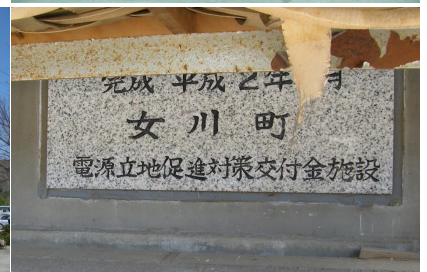 完成 平成2年 月
女川町
電源立地促進対策交付金施設